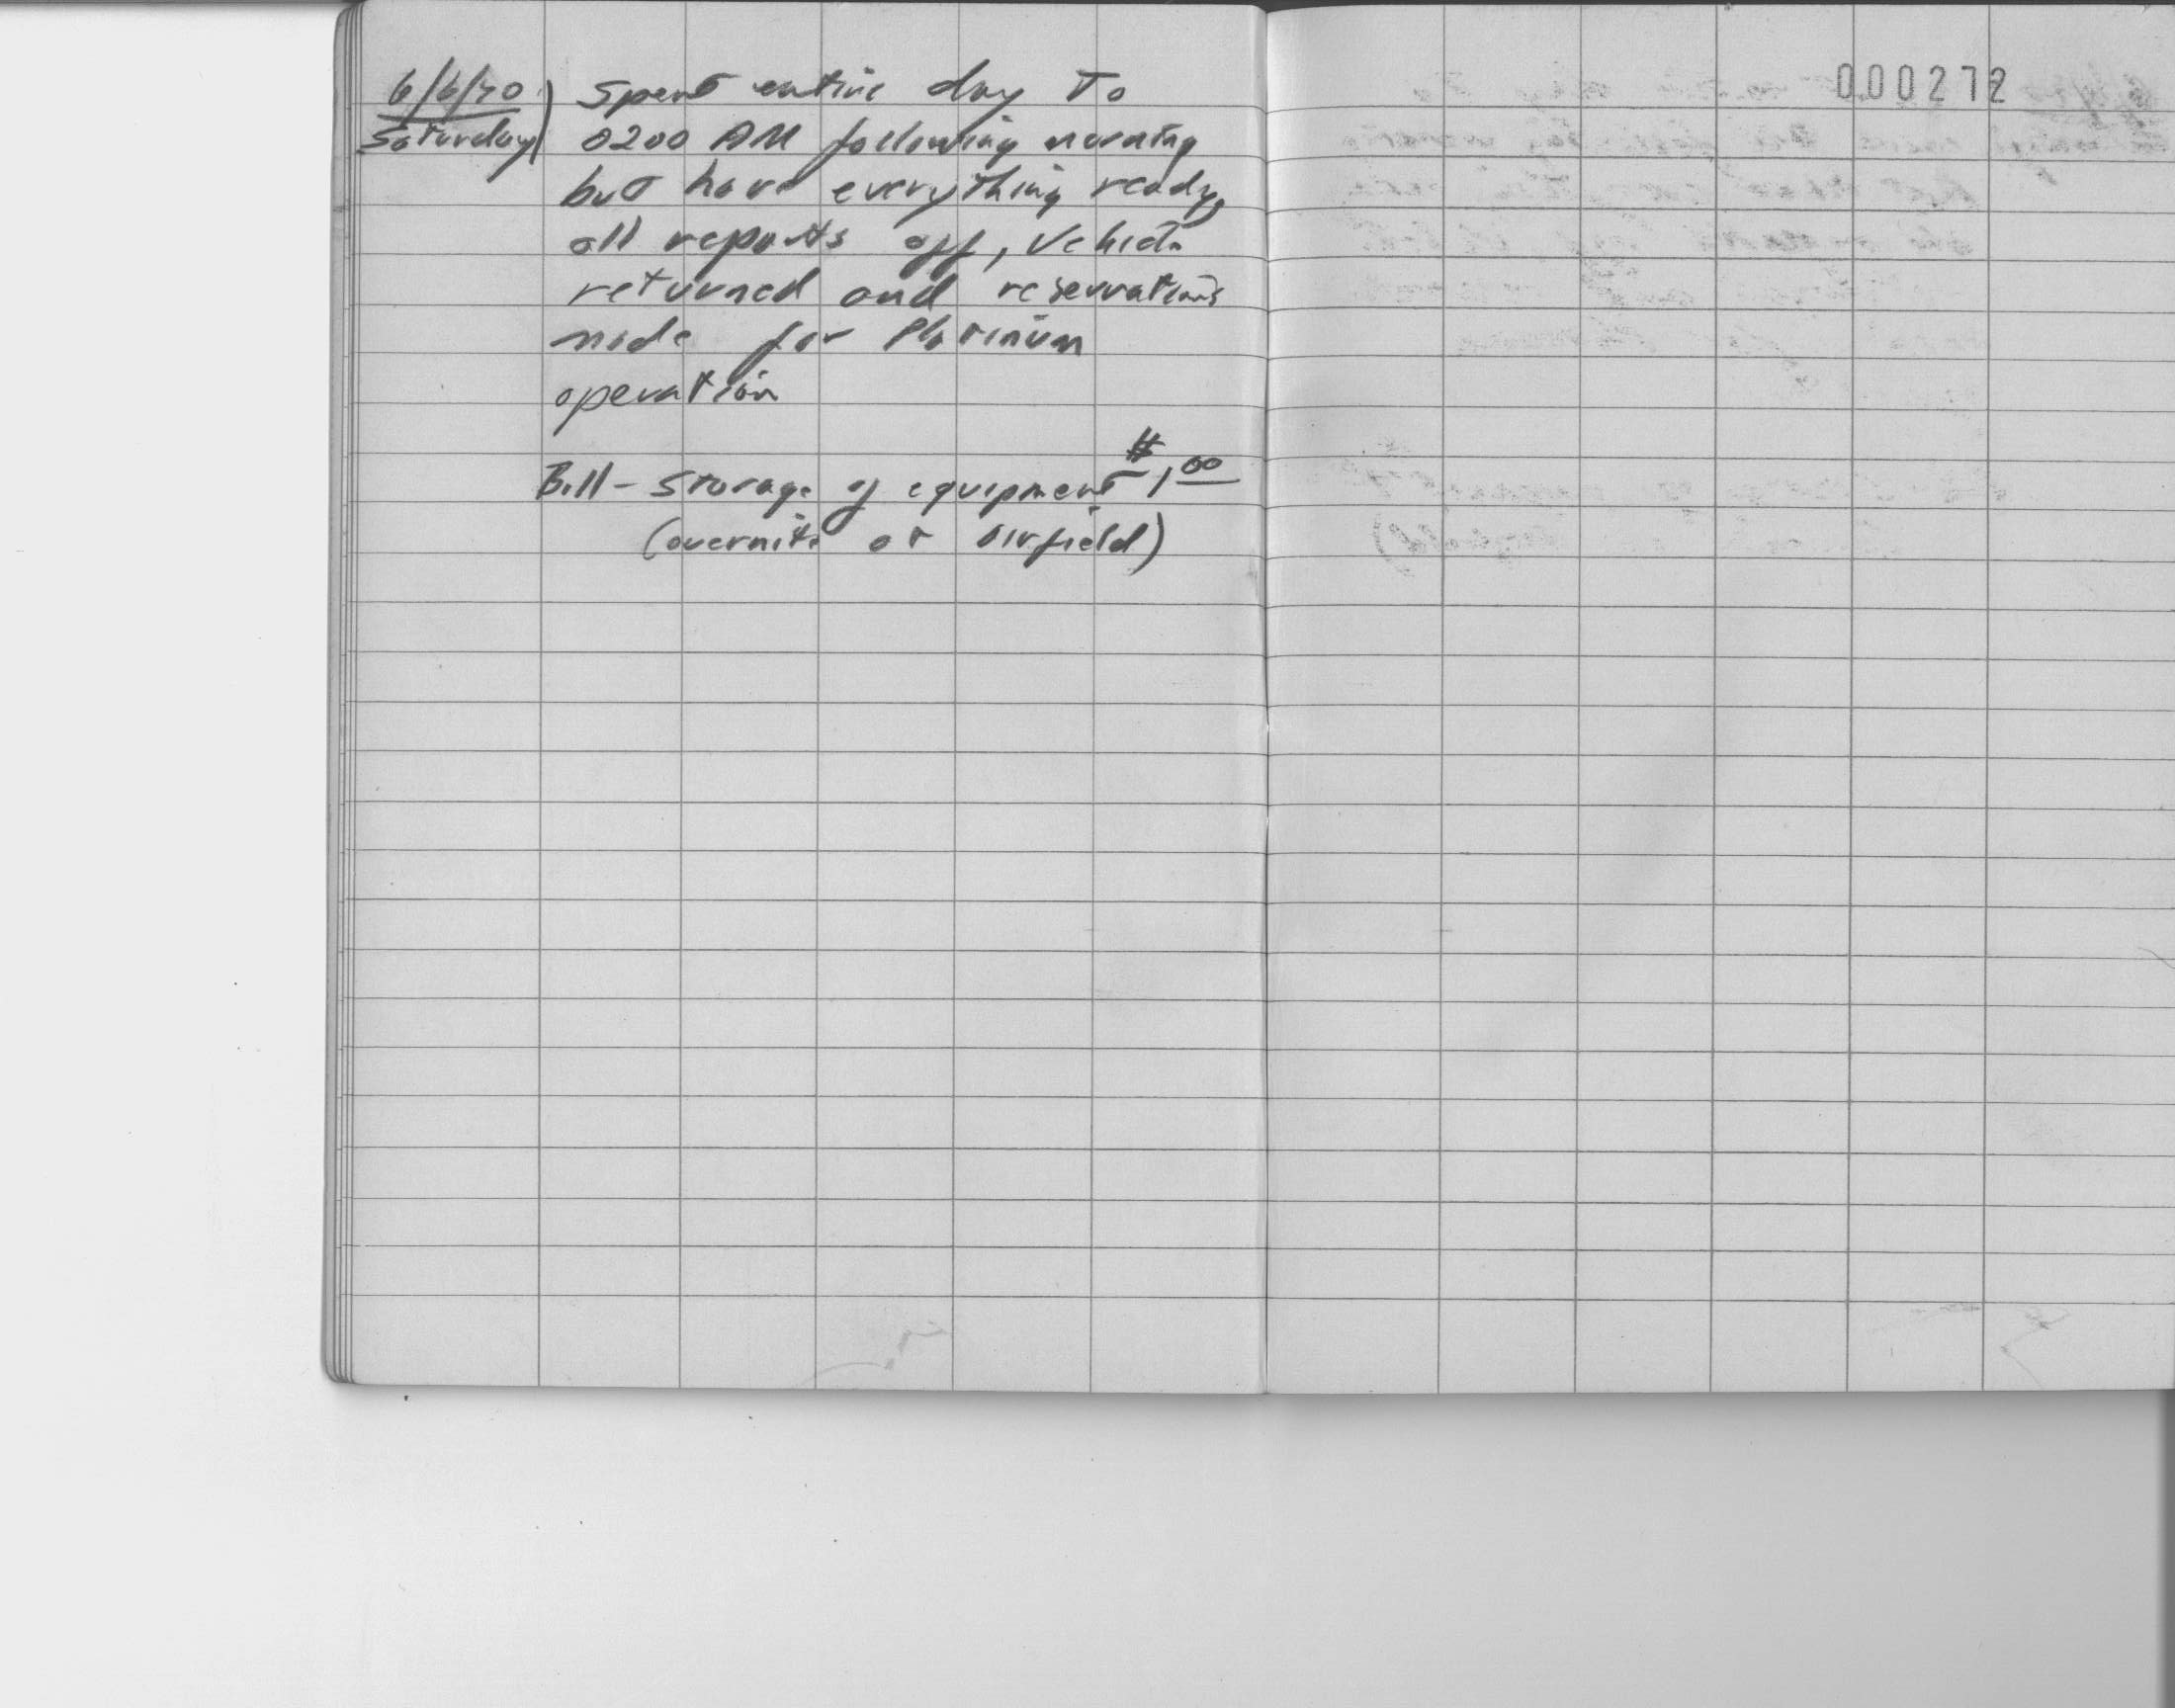 6/6/70) Spent entire day to
Saturday) 0200 AM following morning
but have everything ready,
all reports off, vehicle
returned and reservations
made for Platinum
operation
Bill - Storage of equipment $1.00
(overnite at airfield)
000272